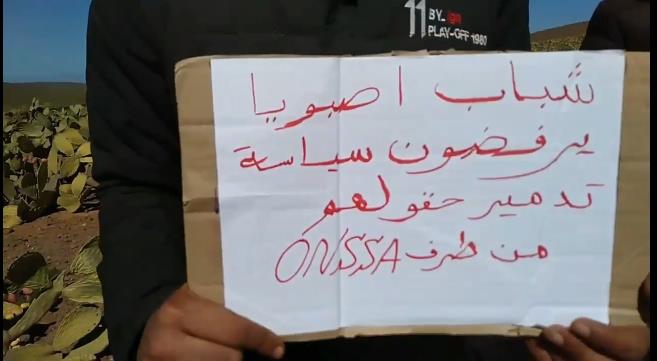 11 BY_ ign
PLAY-OFF 1980
شباب اصبويا
يرفضون سياسة
تدمير حقولهم
من طرف ONSSA